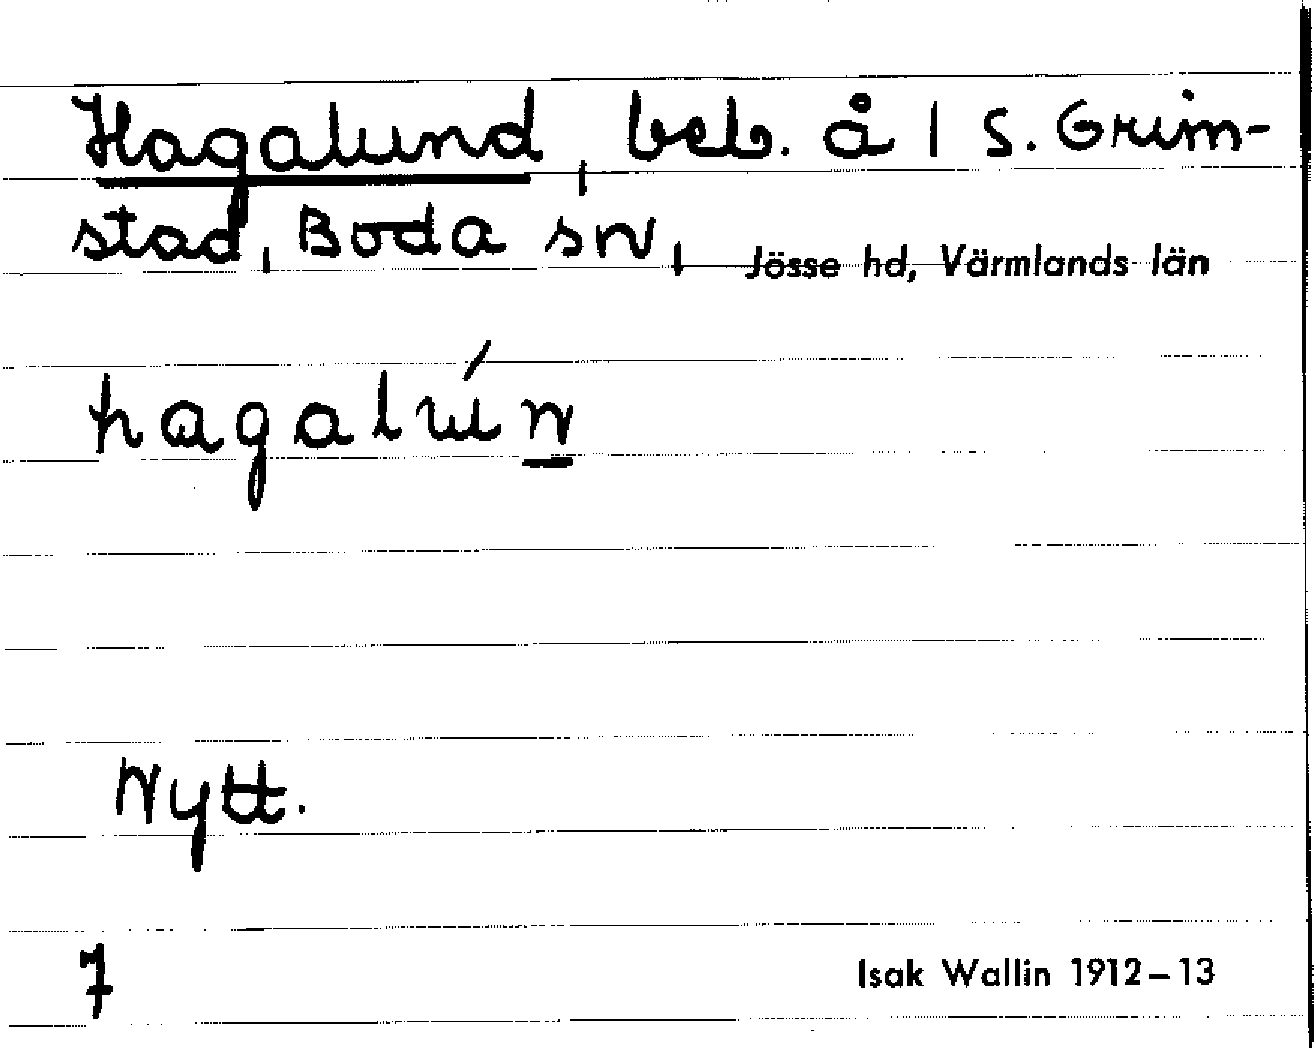 Hagalund, beb. å 1 S. Grim-
stad, Boda sn, Jösse hd, Värmlands län
hagalún
Nytt.
7
Isak Wallin 1912–13